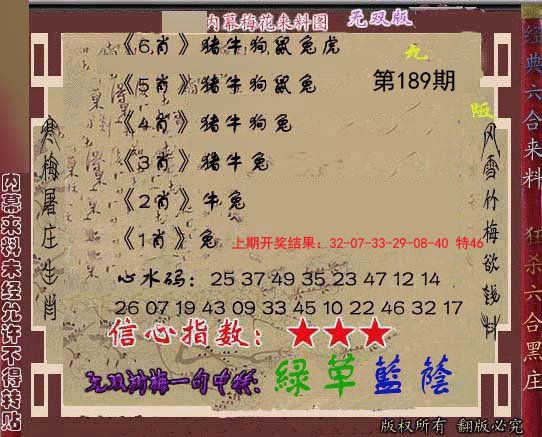 内幕梅花来料图 无双版
《6肖》猪牛狗鼠兔虎
《5肖》猪牛狗鼠兔 第189期
《4肖》猪牛狗兔
《3肖》猪牛兔
《2肖》牛兔
《1肖》兔 上期开奖结果：32-07-33-29-08-40 特46
心水码：25 37 49 35 23 47 12 14
26 07 19 43 09 33 45 10 22 46 32 17
信心指数：★★★
无双浏梅一句中特：綠草藍蔭
寒梅屠庄生肖
风雪竹梅欲钱料
内幕来料未经允许不得转贴
经典六合来料 狂杀六合黑庄
版权所有 翻版必究